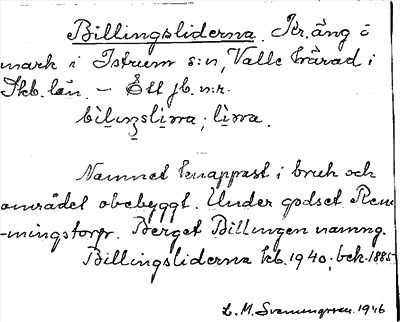 Billingsliderna. Kr.äng o
mark i Istrum s:n, Valle härad i
Skb. län. – Ett jb. n:r.
bìliŋslìɳa; lìɳa.
Namnet knappast i bruk och
området obebyggt. Under godset Rem-
-mingstorp. Berget Billingen namng.
Billingsliderna kb. 1940; bek. 1885-
L. M. Svenungsson. 1946